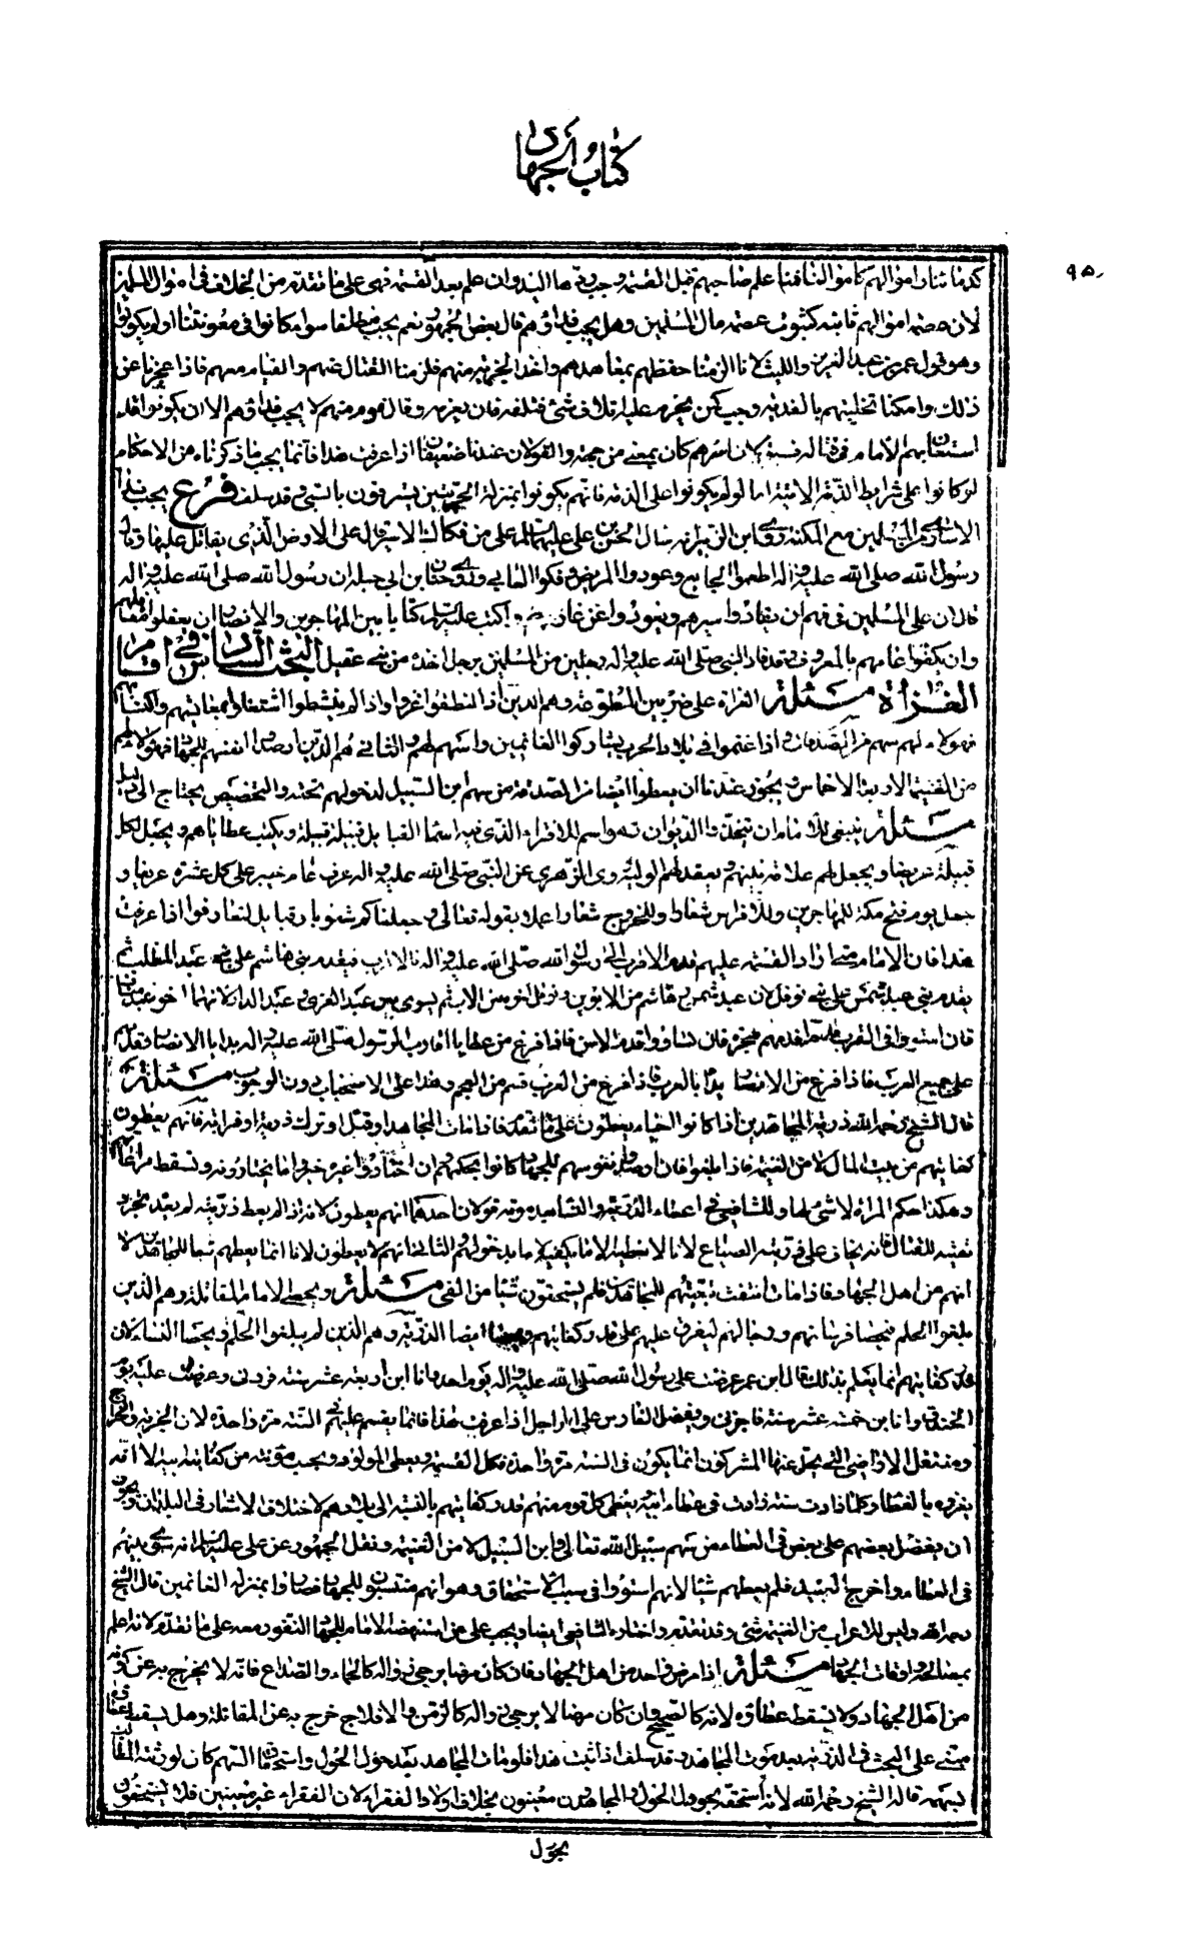 كتاب الجهاد
٩٥٠
كدمائنا و اموالهم كاموالنا فمتى علم صاحبهم قبل القسمة وجب ردها اليه وان علم بعد القسمة فهى على ما تقدم من الخلاف فى اموال المسلمين
لان عصمة اموالهم ثابتة كثبوت عصمة مال المسلمين وهل يجب فداؤهم قال بعض الجمهور نعم يجب مطلقا سواء كانوا فى معونتنا او لم يكونوا
وهو قول عمر بن عبد العزيز والليث لانا التزمنا حفظهم بمعاهدهم واخذ الجزية منهم فلزمنا القتال عنهم والقيام معهم فاذا عجزنا عن
ذلك وامكننا تخليتهم بالفدية وجب كمن يحرم عليه اتلاف شئ فتلفه فان يغرمه وقال قوم منهم لا يجب فداؤهم الا ان يكونوا قد
استعان بهم الامام فى قتاله فسبوا لان اسرهم كان بمعنى من جهته والقولان عندنا ضعيفان اذا عرفت هذا فانما يجب ما ذكرناه من الاحكام
لو كانوا على شرايط الذمة الاتية اما لو لم يكونوا على الذمة فانهم يكونوا بمنزلة الحربيين يسترقون بالسبى وقد سلف فرع يجب فداء
الاسارى من المسلمين مع المكنة وروى ابن الزبير انه سأل الحسن بن على عليهما السلام على من فكاك الاسير قال على الارض الذى يقاتل عليها وقال
رسول الله صلى الله عليه واله اطعموا الجايع وعودوا المريض وفكوا العانى وروى حنان ابن ابى جبلة ان رسول الله صلى الله عليه واله
قال ان على المسلمين فى فيهم ان يفادوا اسيرهم ويؤدوا عن غارمهم وكتب عليه السلام كتابا بين المهاجرين والانصار ان يعقلوا معاقلهم
وان يفكوا عانيهم بالمعروف وقد فاد النبى صلى الله عليه واله رجلين من المسلمين برجل اخذه من بنى عقيل البحث السادس فى اقسام
الغزاة مسئلة الغزاة على ضربين المطوعة وهم الذين اذا نشطوا غزوا واذا لم ينشطوا اشتغلوا بمعايشهم واكتسابهم
فهؤلاء لهم سهم من الصدقات فاذا غنموا فى بلاد الحرب شاركوا الغانمين واسهم لهم والثانى هم الذين ارصدوا انفسهم للجهاد فهؤلاء لهم
من الغنيمة الاربعة الاخماس ويجوز عندنا ان يعطوا ايضا من الصدقة من سهم ابن السبيل لدخولهم تحته والتخصيص يحتاج الى دليل
مسئلة ينبغى للامام ان يتخذ الديوان وهو اسم للدفتر الذى فيه اسماء القبايل قبيلة قبيلة ويكتب عطاياهم ويجعل لكل
قبيلة عريفا ويجعل لهم علامة بينهم ويعقد لهم الوية روى الزهرى عن النبى صلى الله عليه واله عرف عام خيبر على كل عشرة عريفا و
جعل يوم فتح مكة للمهاجرين وللاوس شعارا وللخزرج شعارا عملا بقوله تعالى وجعلناكم شعوبا وقبايل لتعارفوا اذا عرفت
هذا فان الامام متى اراد القسمة عليهم قدم الاقرب الى رسول الله صلى الله عليه واله فالاقرب فيقدم بنى هاشم على بنى عبد المطلب ثم
يقدم بنى عبد شمس على بنى نوفل لان عبد شمس وهاشم من الابوين ونوفل اخوهم من الاب ثم يسوى بين عبد العزى وعبد الدار لانهما اخو عبد مناف
فان استووا فى القرب قدم اقدمهم هجرة فان تساووا قدم الاسن فاذا فرغ من عطايا اقارب الرسول صلى الله عليه واله بدا بالانصار وقدمهم
على جميع العرب فاذا فرغ من الانصار بدأ بالعرب فاذا فرغ من العرب قسم من العجم وهذا على الاستحباب دون الوجوب مسئلة
قال الشيخ رحمه الله ذرية المجاهدين اذا كانوا احياء يعطون على ما تقدم فاذا مات المجاهد او قتل او ترك ذرية او امراة فانهم يعطون
كفايتهم من بيت المال لا من الغنيمة فاذا بلغوا فان ارصدوا نفوسهم للجهاد كانوا بحكمهم ان اختاروا غيره خيروا ما يختارونه وتسقط مراعاتهم
وهكذا حكم المراة لا شئ لها وللشافعى فى اعطاء الذرية والنساء بعد موته قولان احدهما انهم يعطون لانه اذا لم يعط ذريته لم يعد بتجريد
نفسه للقتال فانه يخاف على ذريته الضياع لانا لا نعطيه الا ما يكفيه لا ما يدخر لهم الثانى انهم لا يعطون لانا انما يعطهم تبعا للمجاهد لا
انهم من اهل الجهاد فاذا مات انتفت تبعيتهم للمجاهد فلم يستحقون شيئا من الفئ مسئلة ويحصى الامام المقاتلة وهم الذين
بلغوا الحلم فيحصى فرسانهم ورجالهم ليفرق عليهم على قدر كفايتهم ويحصى ايضا الذرية وهم الذين لم يبلغوا الحلم ويحصى النساء لان
قدر كفايتهم انما يعلم بذلك قال ابن عمر عرضت على رسول الله صلى الله عليه واله يوم احد وانا ابن اربعة عشر سنة فردنى وعرضت عليه يوم
الخندق وانا بن خمسة عشر سنة فاجزنى ويفضل الفارس على الراجل اذا عرفت هذا فانما يقسم عليهم فى السنة مرة واحدة لان الجزية والخراج
ومستغل الاراضى التى يحل عنها المشركون انما يكون فى السنة مرة واحدة فكل القسمة ويعطى المولود ويحسب مؤنته من كفاية ابيه لا انه
يفرده بالعطاء وكلما زادت سنة زادت فى عطاء ابيه يعطى كل قوم منهم قدر كفايتهم بالنسبة الى بلادهم لاختلاف الاسعار فى البلدان ويجوز
ان يفضل بعضهم على بعض فى العطاء من سهم سبيل الله تعالى وابن السبيل لا من الغنيمة ونقل الجمهور عن على عليه السلام انه سوى بينهم
فى العطاء واخرج العبيد فلم يعطهم شيئا لانهم استووا فى سبب الاستحقاق وهو انهم منتسبون للجهاد فصاروا بمنزلة الغانمين قال الشيخ
رحمه الله وليس للاعراب من الغنيمة شئ وقد تقدم واختاره الشافعى ايضا ويجب على من استنهضه الامام للجهاد النفور معه على ما تقدم لانه اعلم
بمصالح اوقات الجهاد مسئلة اذا مرض واحد من اهل الجهاد فان كان مرضا يرجى زواله كالحماء والصداع فانه لا يخرج به عن كونه
من اهل الجهاد ولا يسقط عطاؤه لانه كالصحيح وان كان مرضا لا يرجى زواله كالزمن والافلاج خرج به عن المقاتلة وهل يسقط عطاؤه
مبنى على البحث فى الذرية بعد موت المجاهد وقد سلف اذا ثبت هذا فلو مات المجاهد بعد حول الحول واستحقاق السهم كان لورثته المطالبة
بسهمه قاله الشيخ رحمه الله لانه استحقه بحول الحول والمجاهدون معينون بخلاف اولاد الفقراء لان الفقراء غير معينين فلا يستحقون
بحول